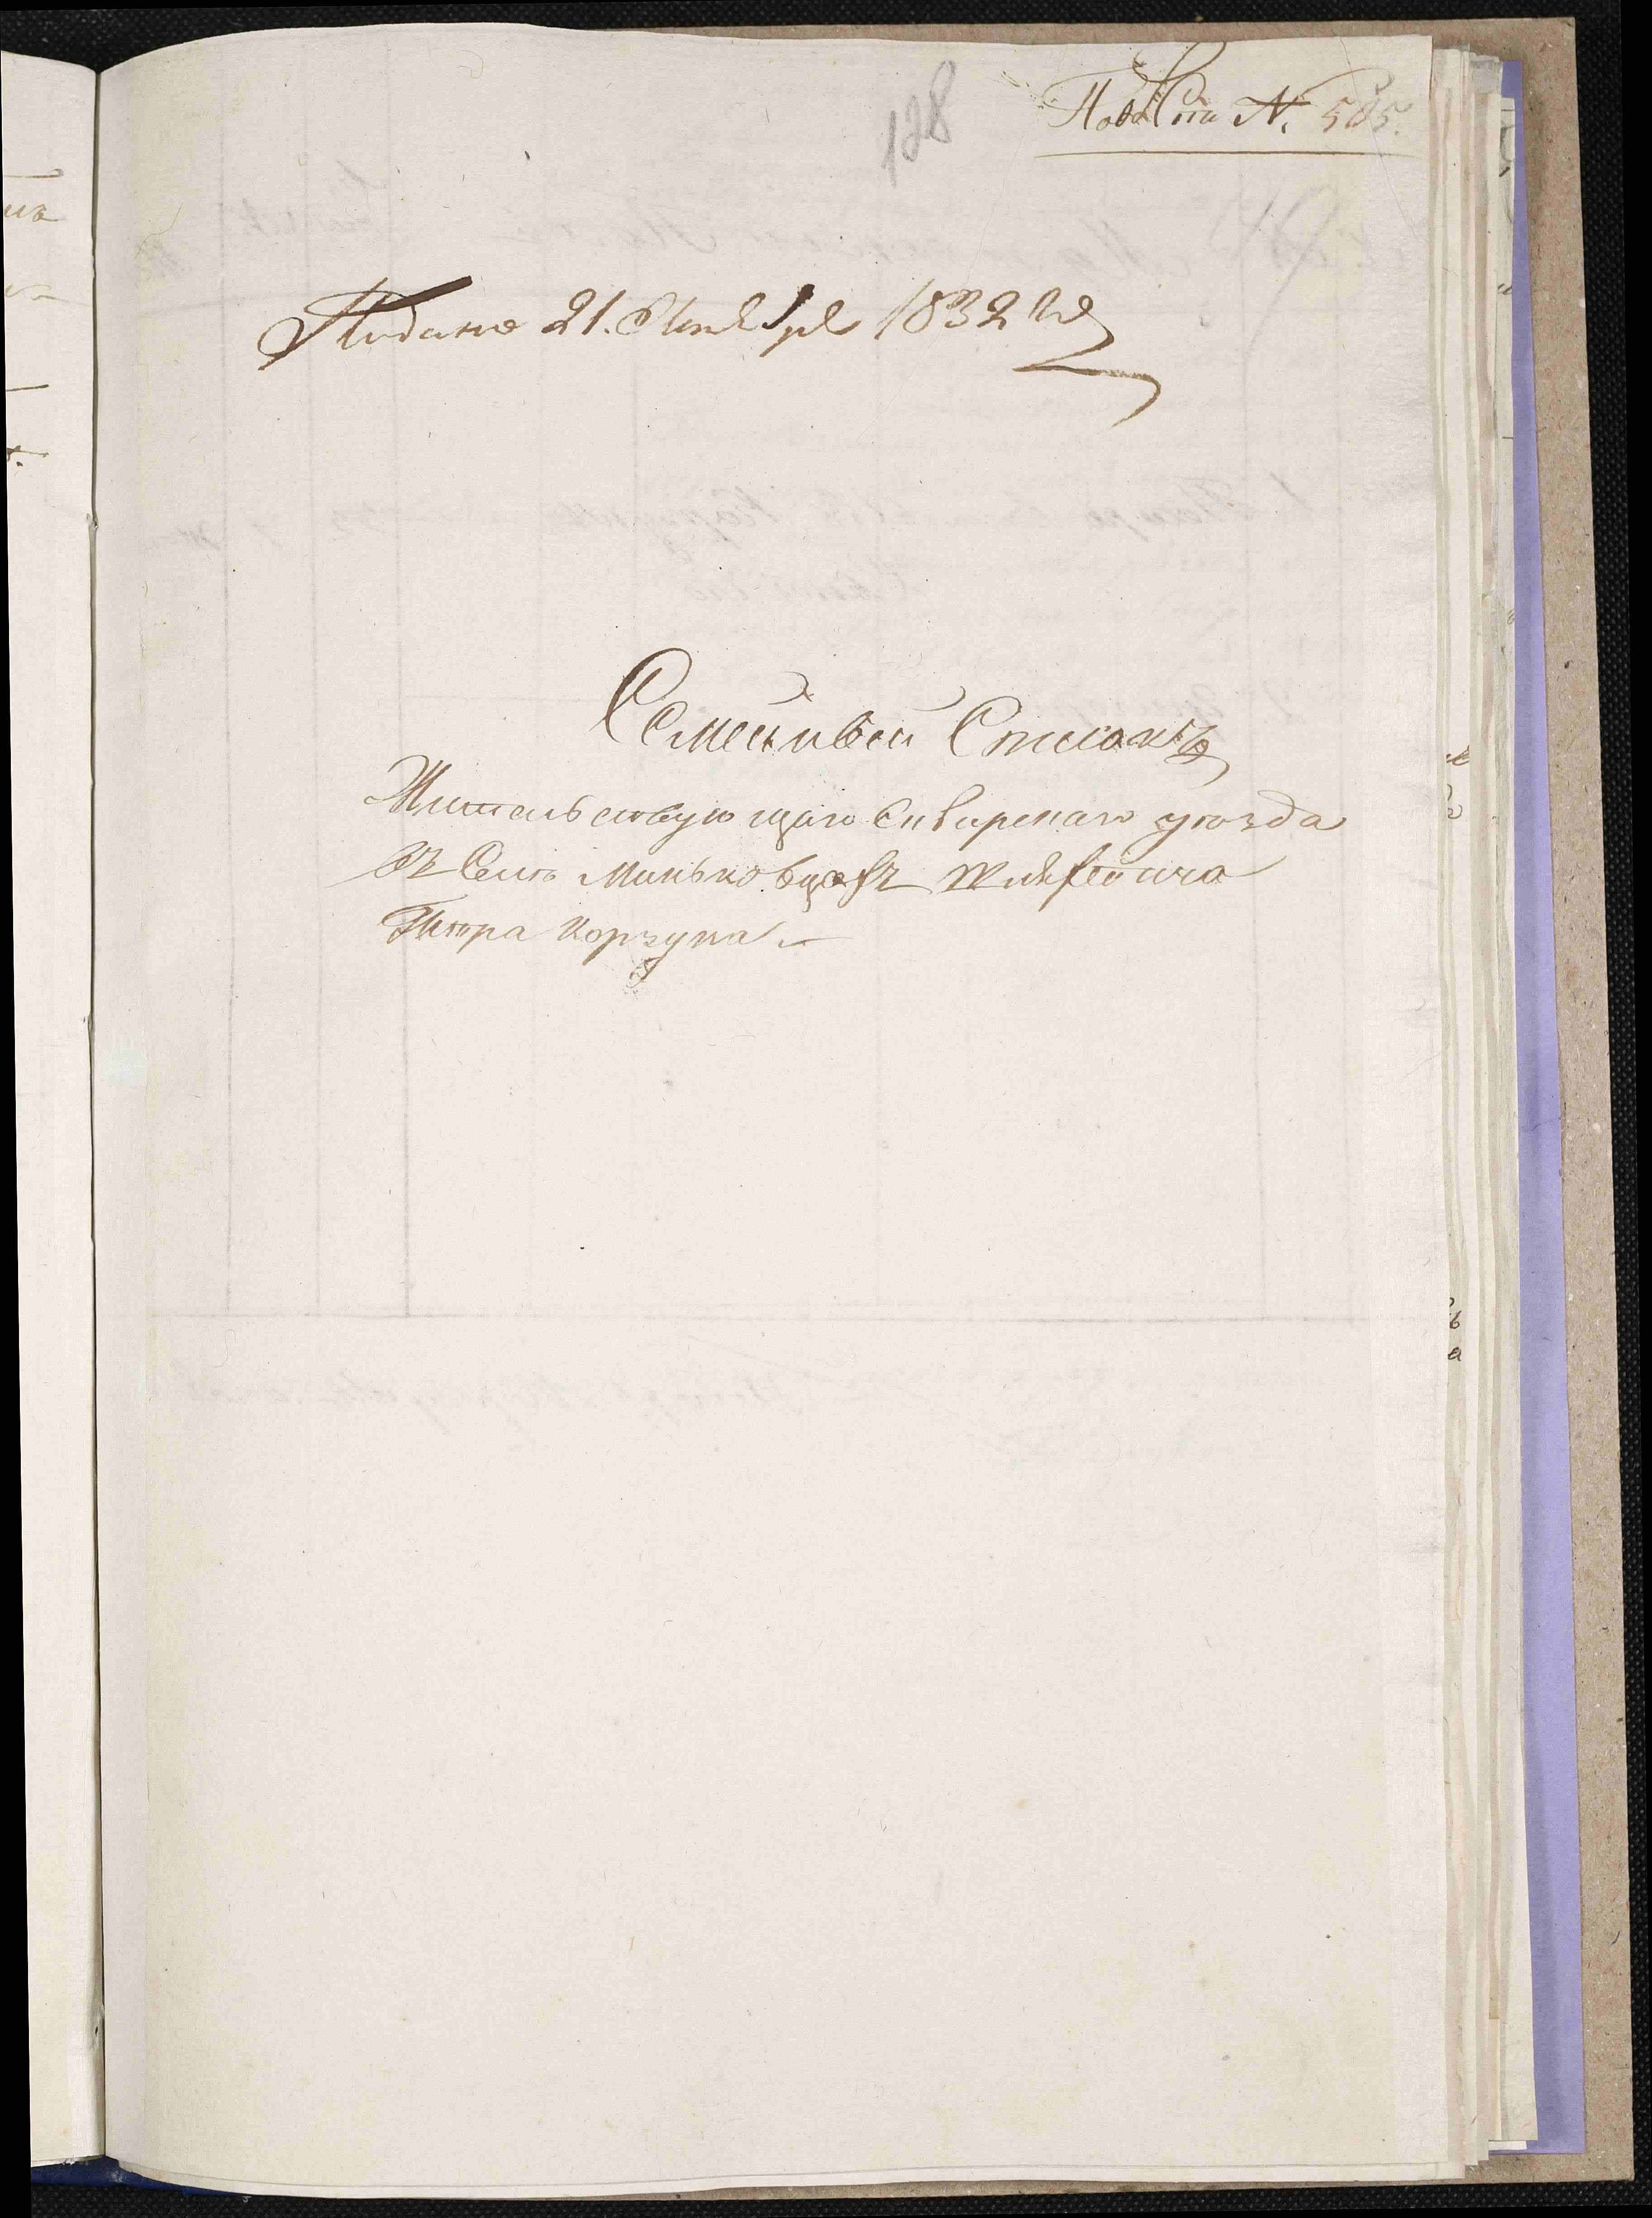 128
N. 505.
Подано 21. Октября 1832 го
Семейный Списокъ
Жительствующаго Сквирскаго уезда
въ Селе Миньковцахъ Шляхтича
Петра Корзуна